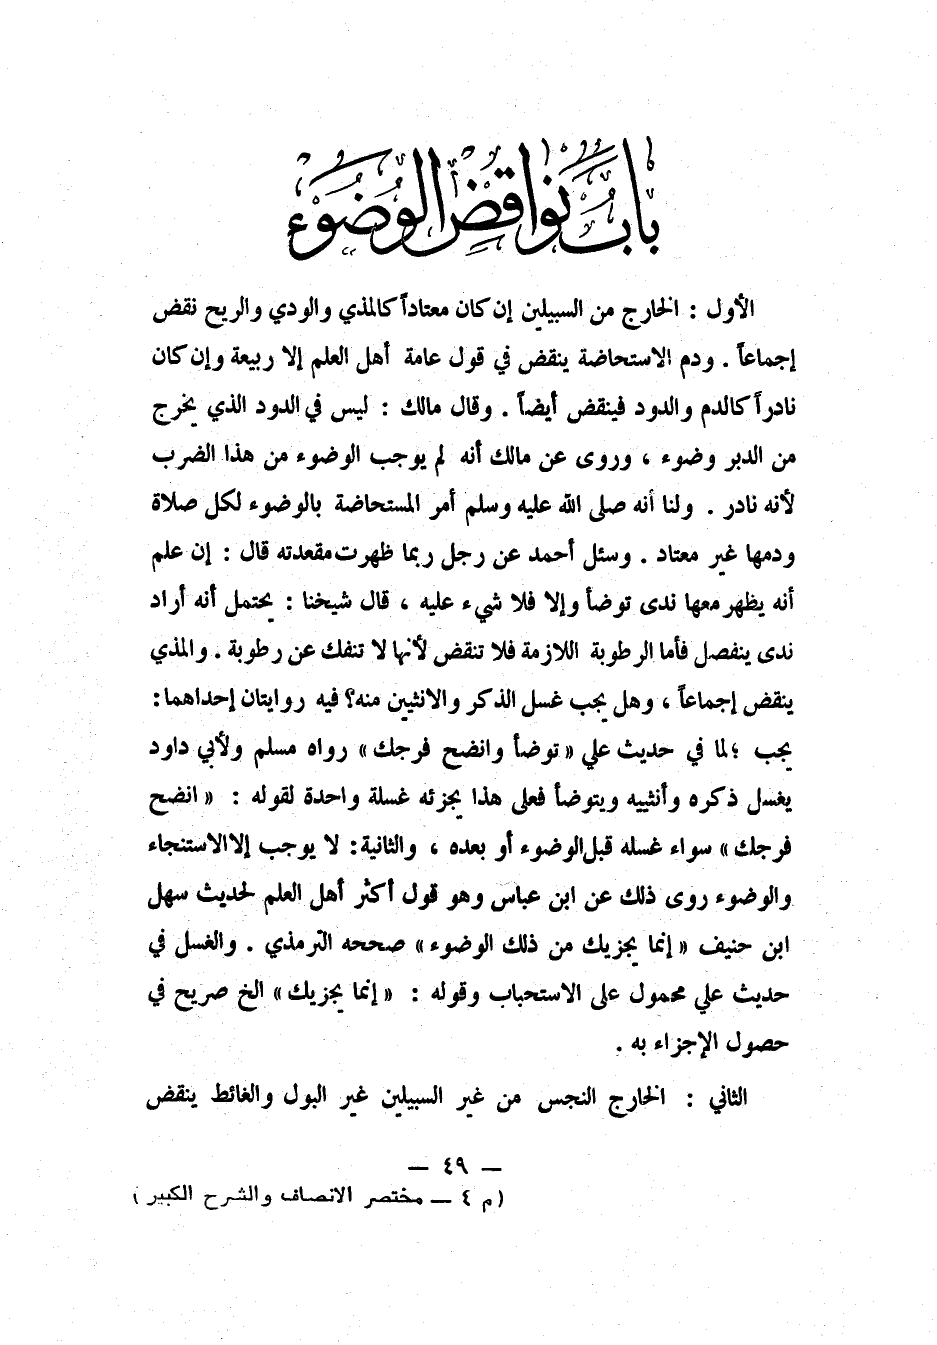 باب نواقض الوضوء
الأول : الخارج من السبيلين إن كان معتاداً كالمذي والودي والريح نقض
إجماعاً . ودم الاستحاضة ينقض في قول عامة أهل العلم إلا ربيعة وإن كان
نادراً كالدم والدود فينقض أيضاً . وقال مالك : ليس في الدود الذي يخرج
من الدبر وضوء ، وروى عن مالك أنه لم يوجب الوضوء من هذا الضرب
لأنه نادر . ولنا أنه صلى الله عليه وسلم أمر المستحاضة بالوضوء لكل صلاة
ودمها غير معتاد . وسئل أحمد عن رجل ربما ظهرت مقعدته قال : إن علم
أنه يظهر معها ندى توضأ وإلا فلا شيء عليه ، قال شيخنا : يحتمل أنه أراد
ندى ينفصل فأما الرطوبة اللازمة فلا تنقض لأنها لا تنفك عن رطوبة . والمذي
ينقض إجماعاً ، وهل يجب غسل الذكر والانثيين منه؟ فيه روايتان إحداهما:
يجب ؛ لما في حديث علي « توضأ وانضح فرجك » رواه مسلم ولأبي داود
يغسل ذكره وأنثييه ويتوضأ فعلى هذا يجزئه غسلة واحدة لقوله : « انضح
فرجك » سواء غسله قبل الوضوء أو بعده ، والثانية: لا يوجب إلا الاستنجاء
والوضوء روى ذلك عن ابن عباس وهو قول أكثر أهل العلم لحديث سهل
ابن حنيف « إنما يجزيك من ذلك الوضوء » صححه الترمذي . والغسل في
حديث علي محمول على الاستحباب وقوله : « إنما يجزيك » الخ صريح في
حصول الإجزاء به .
الثاني : الخارج النجس من غير السبيلين غير البول والغائط ينقض
— ٤٩ —
(م ٤ — مختصر الانصاف والشرح الكبير)